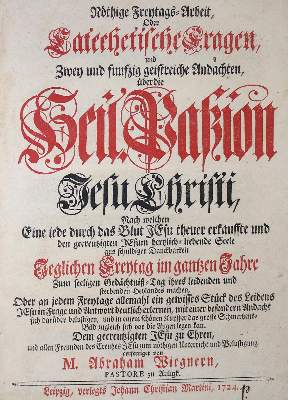 Nöthige Freytags-Arbeit,
Oder
Catechetische Fragen,
und
Zwey und funfzig geistreiche Andachten,
über die
Heil. Paßion
Jesu Christi,
Nach welchen
Eine iede durch das Blut JEsu theuer erkauffte und
den gecreutzigten JEsum hertzlich-liebende Seele
aus schuldiger Danckbarkeit
Jeglichen Freytag im gantzen Jahre
Zum seeligen Gedächtniß-Tag ihres leidenden und
sterbenden Heilandes machen,
Oder an jedem Freytage allemahl ein gewisses Stück des Leidens
JEsu in Frage und Antwort deutlich erlernen, mit einer besondern Andacht
sich darüber belustigen, und in einem schönen Kupffer das große Schmertzens-
Bild zugleich sich vor die Augen legen kan.
Dem gecreutzigten JEsu zu Ehren,
und allen Freunden des Creutzes JEsu zum nöthigen Unterricht und Belustigung
M. Abraham Wiegnern,
PASTORE zu
Leipzig, verlegts Johann Christian Martini, 1724.